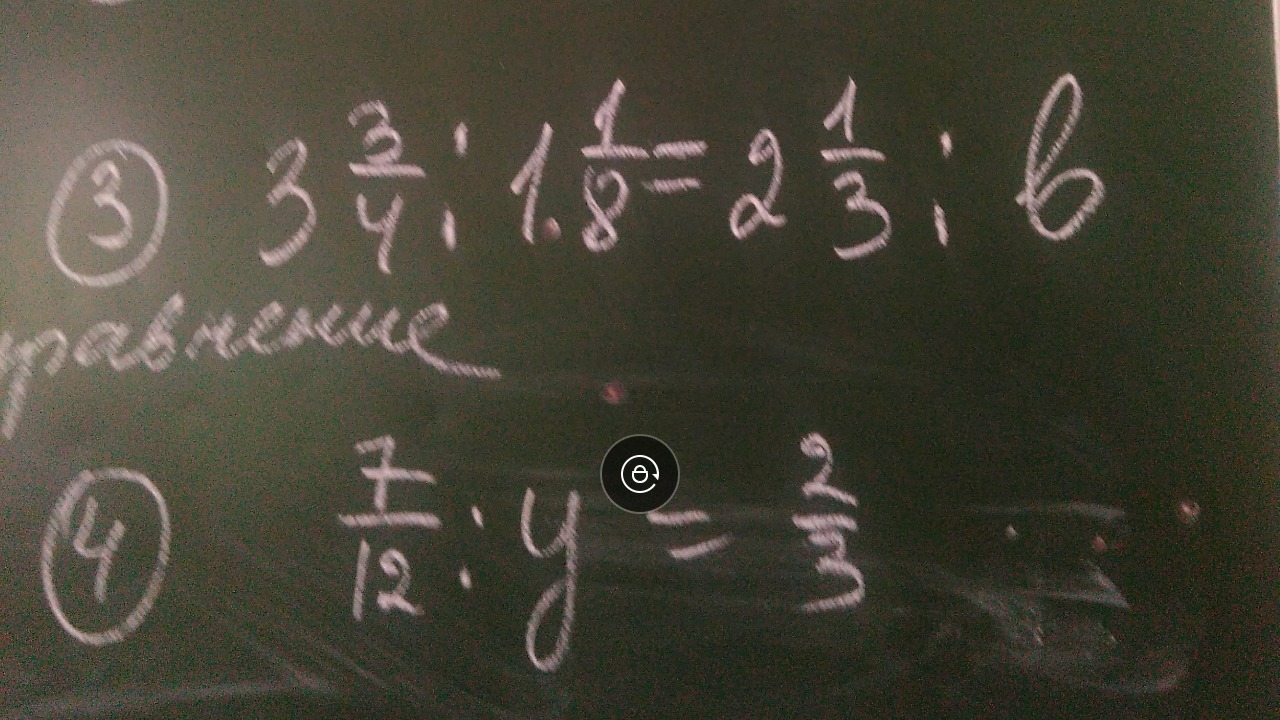 ③ 3 3/4 : 1 1/8 = 2 1/3 : b
уравнение
④ 7/12 : y = 2/3